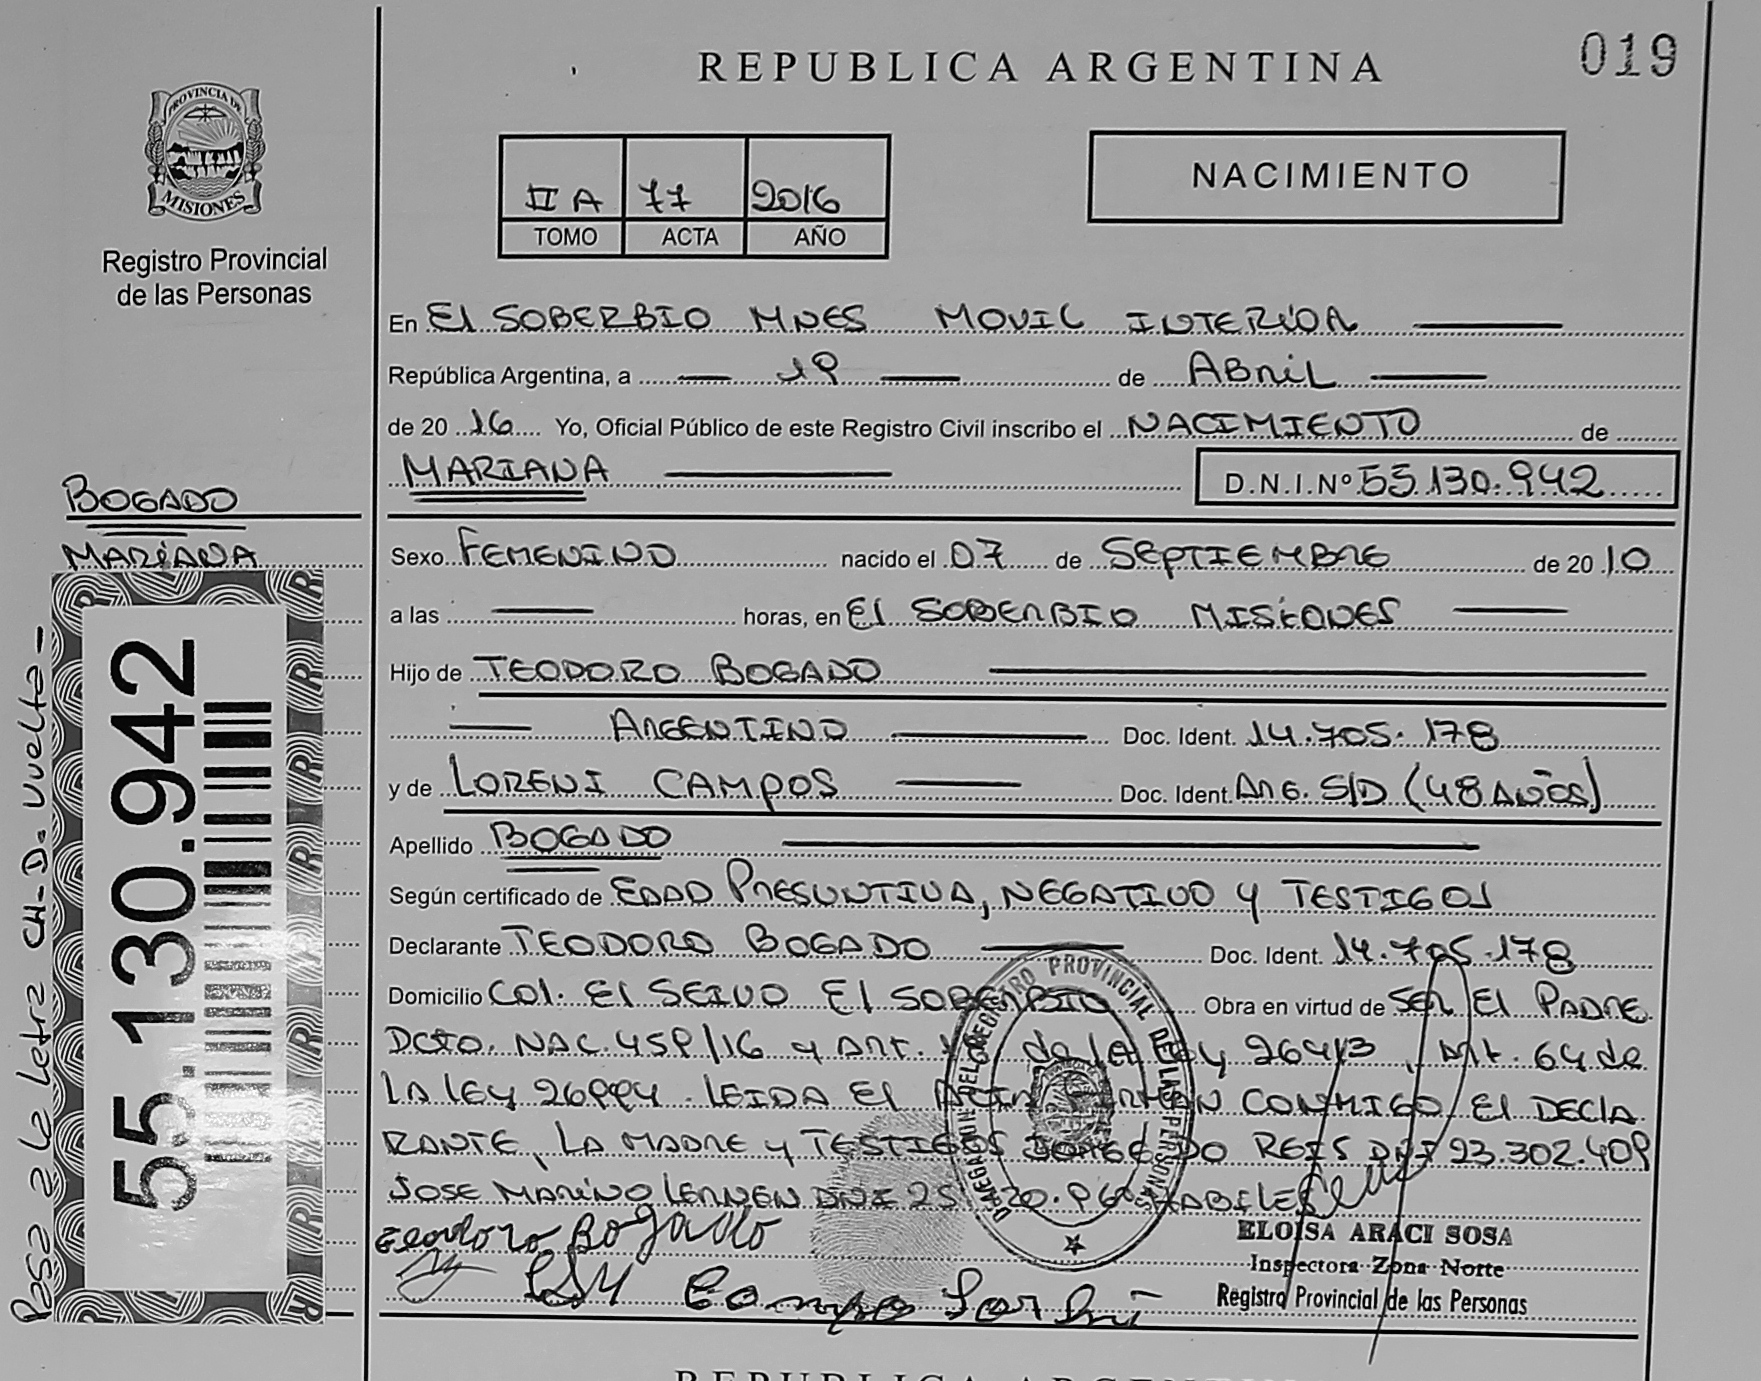 REPUBLICA ARGENTINA
019
PROVINCIA DE
MISIONES
Registro Provincial
de las Personas
II A 77 2016
TOMO ACTA AÑO
NACIMIENTO
En El SOBERBIO MNES MOVIL INTERIOR
República Argentina, a 19 de ABRIL
de 20 16 Yo, Oficial Público de este Registro Civil inscribo el NACIMIENTO de
MARIANA D.N.I.Nº 55.130.942
BOGADO
MARIANA
Sexo FEMENINO nacido el 07 de SEPTIEMBRE de 20 10
a las horas, en El SOBERBIO MISIONES
Hijo de TEODORO BOGADO
ARGENTINO Doc. Ident. 14.705.178
y de LORENI CAMPOS Doc. Ident. ARG. S/D (48 AÑOS)
Apellido BOGADO
Según certificado de EDAD PRESUNTIVA, NEGATIVO y TESTIGOS
Declarante TEODORO BOGADO Doc. Ident. 14.705.178
Domicilio Col. El SEIVO El SOBERBIO Obra en virtud de SER El PADRE
DCTO. NAC. 459/16 y ART. de la LEy 26413, ART. 64 de
LA lEy 26994. LEIDA El FIRMAN CONMIGO El DECLA
RANTE, LA MADRE y TESTIGOS REIS DNI 23.302.409
JOSE MARINO DNI 25 HABILES
Teodoro Bogado
ELOISA ARACI SOSA
Inspectora Zona Norte
Registro Provincial de las Personas
REGISTRO PROVINCIAL DE LAS PERSONAS
55.130.942
Pasa a la letra CH-D. Vuelta-
REPUBLICA ARGENTINA